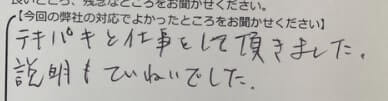 良いところ、残念なところをお聞かせください。
【今回の弊社の対応でよかったところをお聞かせください】
テキパキと仕事をして頂きました。
説明もていねいでした。